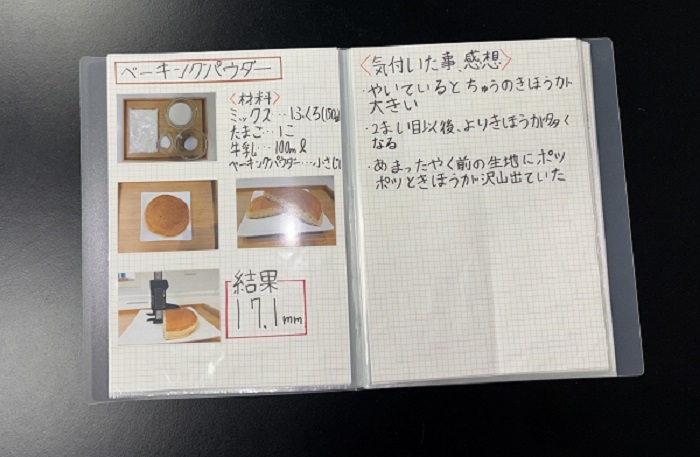 ベーキングパウダー
〈材料〉
ミックス…1ふくろ(150g)
たまご…1こ
牛乳…100mℓ
ベーキングパウダー…小さじ1
結果
17.1mm
〈気付いた事、感想〉
・やいているとちゅうのきほうが
大きい
・2まい目以後、よりきほうが多く
なる
・あまったやく前の生地にポツ
ポツときほうが沢山出ていた